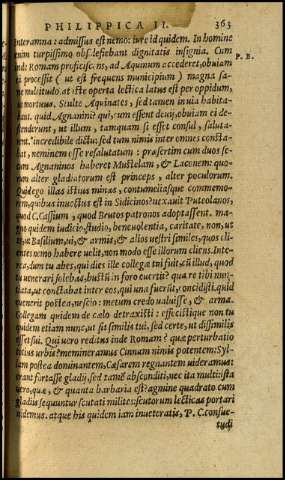 PHILIPPICA II. 363
Interamna: admissus est nemo: iure id quidem. In homine
enim turpissimo obsolefiebant dignitatis insignia. Cum P. B.
inde Romam proficiscens, ad Aquinum accederet, obuiam
ei processit (ut est frequens municipium) magna sa-
ne multitudo. at iste operta lectica latus est per oppidum,
ut mortuus. Stulte Aquinates, sed tamen in uia habita-
bant. quid Agnanini? qui, cum essent deuij, obuiam ei de-
scenderunt, ut illum, tamquam si esset consul, saluta-
rent. incredibile dictu: sed tum nimis inter omnes consta-
bat, neminem esse resalutatum: præsertim cum duos se-
cum Agnaninos haberet Mustelam, & Laconem: quo-
rum alter gladiatorum est princeps, alter poculorum.
Quid ego illas istius minas, contumeliasque commemo-
rem, quibus inuectus est in Sidicinos? uexauit Puteolanos,
quod C. Cassium, quod Brutos patronos adoptassent. mag-
no quidem iudicio, studio, beneuolentia, caritate, non, ut
te, ut Basilium, ui, & armis, & alios uestri similes, quos cli-
entes nemo habere uelit, non modo esse illorum cliens. Inte-
rea, dum tu abes, qui dies ille collegæ tui fuit, cum illud, quod
tu uenerari solebas, bustum in foro euertit? qua re tibi nun-
tiata, ut constabat inter eos, qui una fuerunt, concidisti. quid
euenerit postea, nescio: metum credo ualuisse, & arma.
Collegam quidem de cælo detraxisti: effecistique non tu
quidem etiam nunc, ut sit similis tui, sed certe, ut dissimilis
esset sui. Qui uero reditus inde Romam? quæ perturbatio
totius urbis? memineramus Cinnam nimis potentem: Syl-
lam postea dominantem, Cæsarem regnantem uideramus:
erant fortasse gladij, sed tamen absconditi, nec ita multi. ista
uero, quæ, & quanta barbaria est? agmine quadrato cum
gladijs sequuntur scutati milites: scutorum lecticas portari
uidemus. atque his quidem iam inueteratis, P. C. consue-
tudi